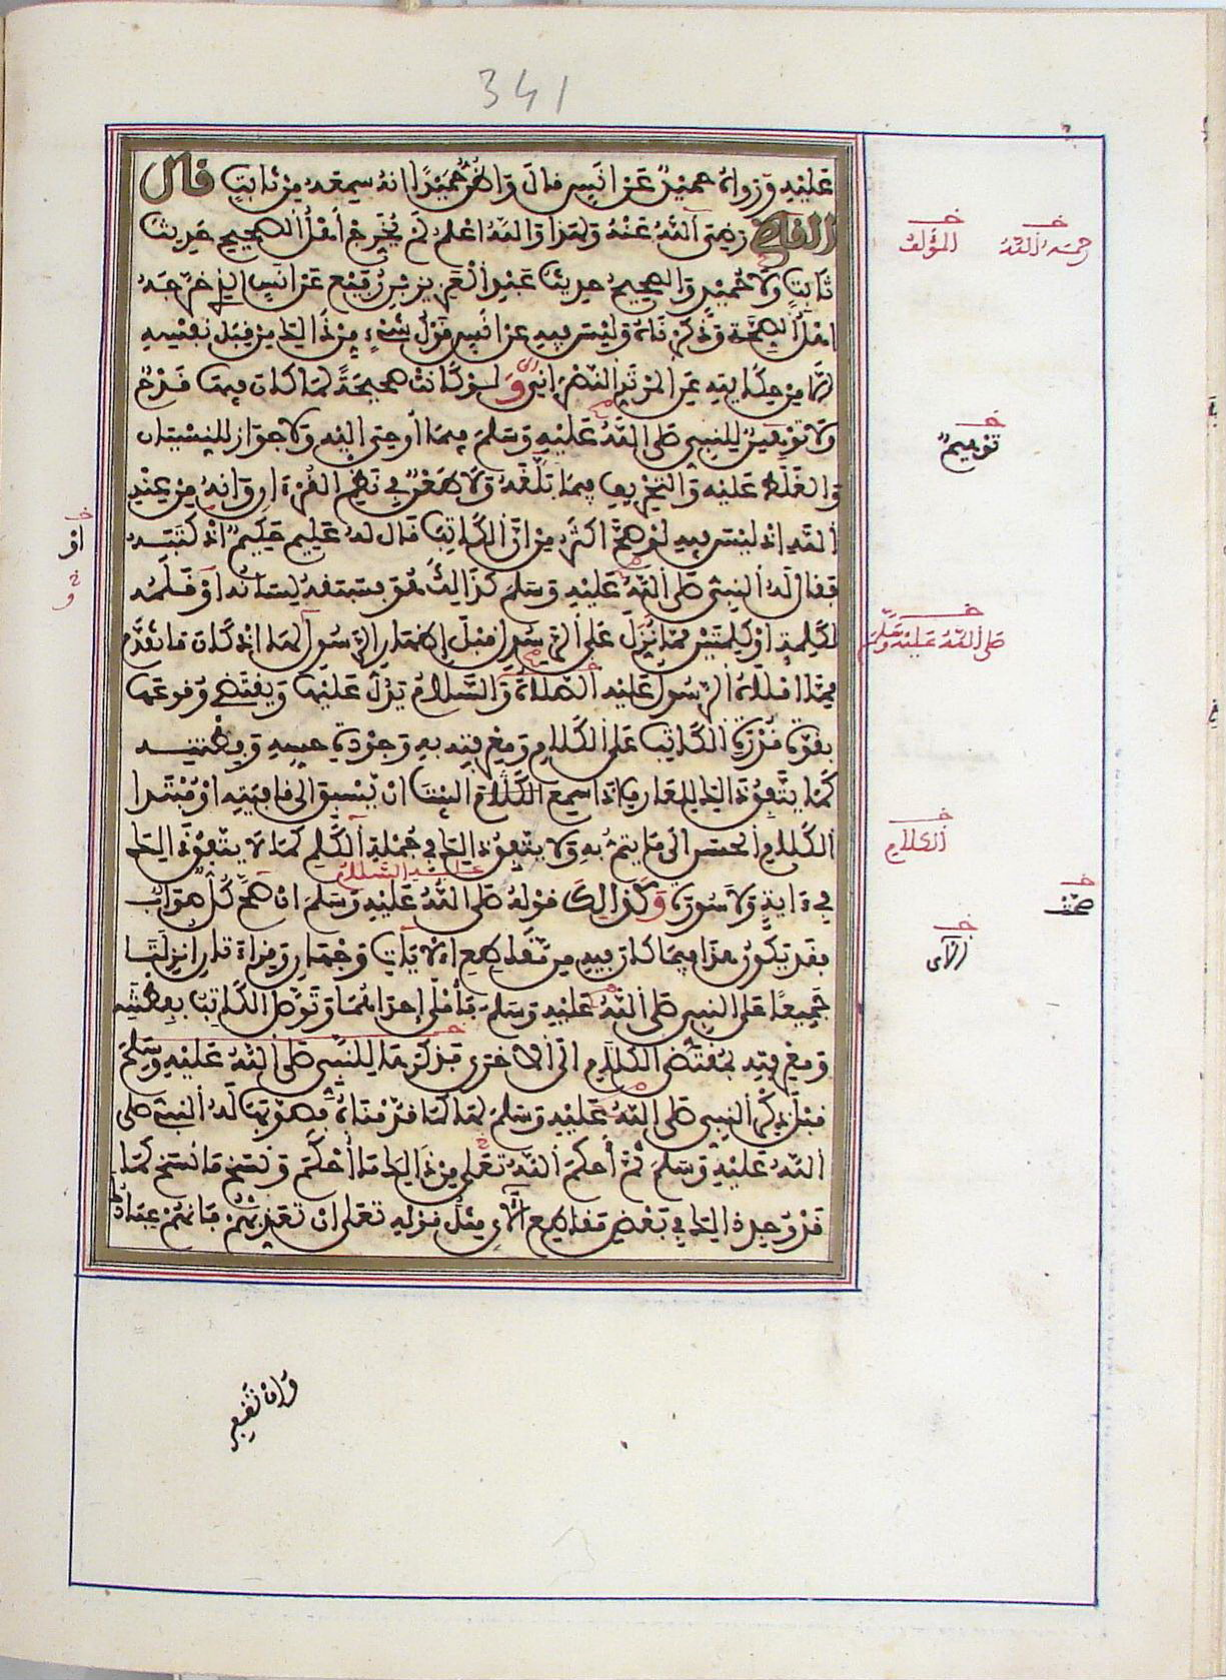 341
عَلَيْهِ وَرَوَاهُ حميْدٌ عَنْ اَنَسٍ قالَ وَاظُنُّ حُمَيْدًا انهُ سمِعَهُ مِنْ ثابِتٍ قال
القاضى رَضِىَ اللَّهُ عَنْهُ وَلهذا وَاللهُ اعْلمُ لَمْ يُخَرِّجْ أهْلُ الصحيح حَدِيثَ
ثَابتٍ وَلَا حُمَيْدٍ وَالصحيحُ حديثُ عَبْدِ الْعَزيزِ بْنِ رُفَيْعٍ عَنْ انَسٍ الذى خرَّجَهُ
اهْلُ الصِّحَّةِ وَذَكَرْنَاهُ وَلَيْسَ فيهِ عن انَسٍ قَوْلُ شَىْءٍ مِنْ ذَالِكَ مِن قِبَلِ نَفْسِهِ
الَّا مِنْ حِكَايتِهِ عَنِ الْمُرْتَدِّ النَّصْرَانِىِّ وَلَوْ كَانَتْ صَحيحَةً لمَا كَانَ فيهَا قَدْحٌ
ولَا تَوْهِينٌ لِلنبىِ صَلى اللَّهُ عَلَيْهِ وَسَلَّمَ فِيمَا أُوحِىَ الَيْهِ وَلَا جَوَازٌ لِلنِّسْيَان
وَالغَلَطِ عَلَيْهِ وَالتحْرِيفِ فِيمَا بَلَّغَهُ وَلَا طَعْنٌ فِى نَظْمِ القُرْءَانِ وَانهُ مِنْ عِنْدِ
اللهِ اذْ لَيْسَ فيهِ لَوْ صَحَّ اكثَرُ مِنْ انَّ الْكَاتِبَ قَالَ لهُ عَلِيمٌ حَكِيمٌ اوْ كَتَبَهُ
فقالَ لَهُ النبِىُّ صَلى اللَّهُ عَلَيْهِ وَسَلمَ كَذَالِكَ هُوَ فسَبَقَهُ لِسَانُهُ اوْ قَلَمُهُ
لكَلِمَةٍ اوْ كَلِمَتَيْنِ ممَّا نُزِّلَ عَلَى الرَّسُولِ قَبْلَ إظهَارِ الرَّسُولِ لهَا اذْ كَانَ مَا تَقَدَّمَ
ممَّا امْلَاهُ الرَّسُولُ عَلَيْهِ الصَّلَاةُ وَالسَّلَامُ يَدُلُّ عَلَيْهَا وَيَقْتَضِى وُقُوعَهَا
بِقُوَّةِ قُدْرَةِ الْكَاتِبِ عَلَى الْكَلَامِ وَمَعْرِفَتِهِ بِهِ وَجَوْدَةِ حِسِهِ وَفِطْنَتِهِ
كَمَا يَتَّفِقُ ذَالِكَ لِلْعَارِفِ اذَا سَمِعَ الْبَيْتَ انْ يَسْبِقَ الَى قَافِيَتِهِ اوْ مُبْتَدَا
الكَلَامِ الحَسَنِ الَى مَا يَتِمُّ بِهِ وَلَا يتَّفِقُ ذَالِكَ فى جُمْلَةِ الْكَلِمِ كَمَا لَا يتَّفِقُ ذَالِكَ
فِى ءَايَةٍ وَلَا سُورَةٍ وَكَذَالِكَ قَوْلُهُ صَلى اللَّهُ عَلَيْهِ وَسَلَّمَ انْ صَحَّ كُلٌّ صَوَابٌ
عليه السلام
فقدْ يَكُونُ هذَا فِيمَا كَانَ فِيهِ مِنْ مَقَاطِعِ الآيَاتِ وَجْهَانِ وَقِرَاءَتَانِ انْزِلَتَا
جَمِيعًا عَلَى النبِىِ صَلى اللَّهُ عَلَيْهِ وَسَلمَ فَأمْلَى إحْدَاهُمَا وَتَوَصَّلَ الْكَاتِبُ بِفِطْنَتِهِ
وَمَعْرِفَتِهِ بمُقْتَضَى الْكَلَامِ الَى الاخْرَى فَذَكَرَهَا لِلنَّبِىِّ صَلى اللَّهُ عَلَيْهِ وَسَلَّمَ
قَبْلَ ذِكْرِ النبِىِ صَلى اللَّهُ عَلَيْهِ وَسَلمَ لهَا كَمَا قَدَّمْنَاهُ فَصَوَّبَهَا لَهُ النبِىُّ صَلى
اللَّهُ عَلَيْهِ وَسَلمَ ثُمَّ أحْكَمَ اللَّهُ تعَلى مِنْ ذَالِكَ مَا أحْكَمَ وَنَسَخَ مَا نَسَخَ كَمَا
قَدْ وُجِدَ ذَالِكَ فِى بَعْضِ مَقَاطِعِ الْآىِ مِثْلُ قَوْلِهِ تَعَلى انْ تُعَذِّبْهُمْ فَإنَّهُمْ عِبَادُكَ
رحمه الله
المؤلف
توهيمٌ
اوْ
صَلى اللهُ عَلَيْهِ وَسلم
الكلام
صحَّتْ
الآى
وَإنْ تَغْفِرْ